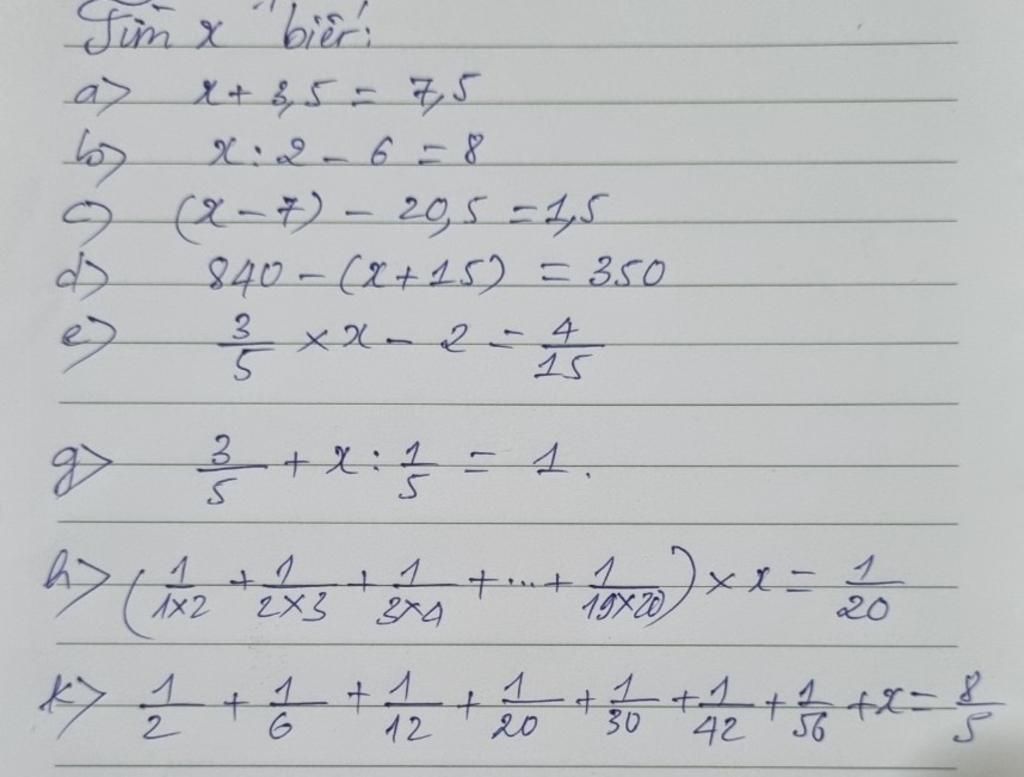 Tìm x biết:
a) x + 3,5 = 7,5
b) x : 2 - 6 = 8
c) (x - 7) - 20,5 = 1,5
d) 840 - (x + 15) = 350
e) 3/5 × x - 2 = 4/15
g) 3/5 + x : 1/5 = 1.
h) (1/1×2 + 1/2×3 + 1/3×4 + ... + 1/19×20) × x = 1/20
k) 1/2 + 1/6 + 1/12 + 1/20 + 1/30 + 1/42 + 1/56 + x = 8/5